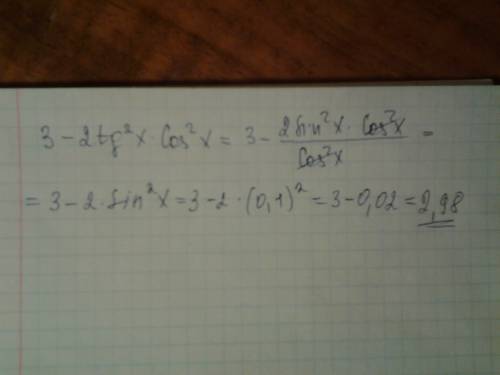 3 - 2tg²x · Cos²x = 3 - (2Sin²x · Cos²x)/(Cos²x) =
= 3 - 2 · Sin²x = 3 - 2 · (0,1)² = 3 - 0,02 = 2,98